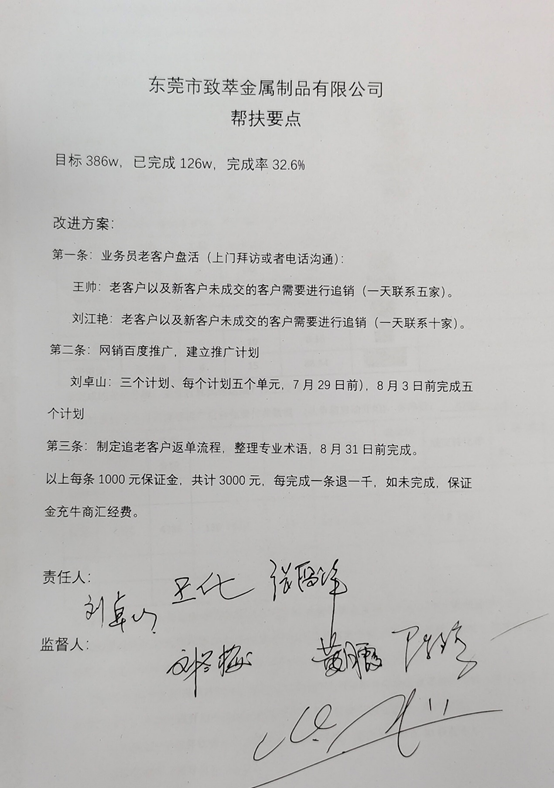 东莞市致萃金属制品有限公司
帮扶要点
目标 386w，已完成 126w，完成率 32.6%
改进方案：
第一条：业务员老客户盘活（上门拜访或者电话沟通）：
王帅：老客户以及新客户未成交的客户需要进行追销（一天联系五家）。
刘江艳：老客户以及新客户未成交的客户需要进行追销（一天联系十家）。
第二条：网销百度推广，建立推广计划
刘卓山：三个计划、每个计划五个单元，7 月 29 日前），8 月 3 日前完成五
个计划
第三条：制定追老客户返单流程，整理专业术语，8 月 31 日前完成。
以上每条 1000 元保证金，共计 3000 元，每完成一条退一千，如未完成，保证
金充牛商汇经费。
责任人：
刘卓山
监督人：